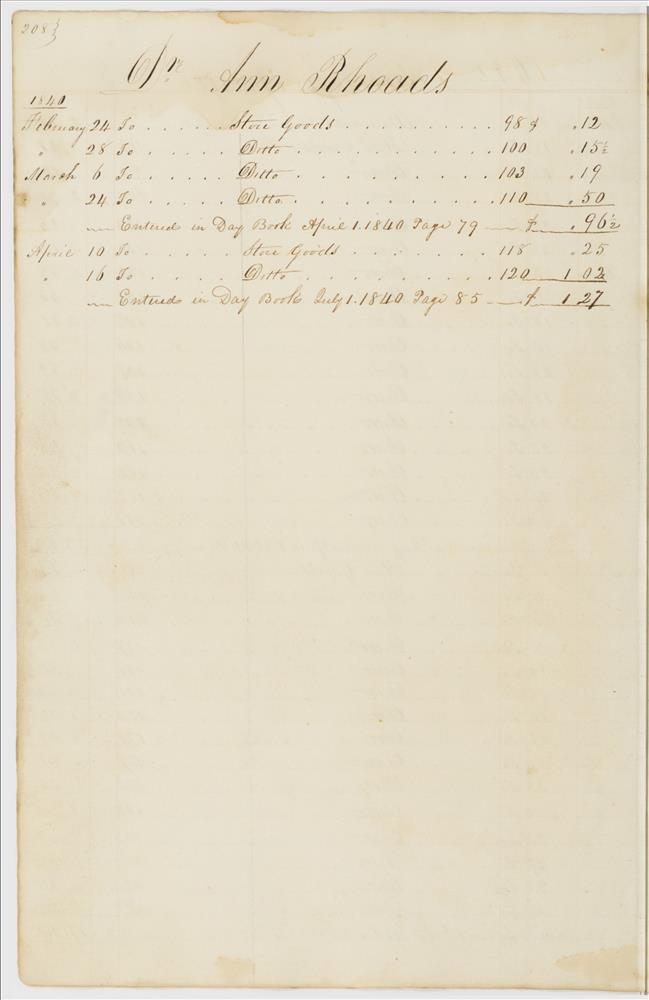 208}
Dr. Ann Rhoads
1840
February 24 To . . . . . . Store Goods . . . . . . . . . . 98 $ " 12
" 28 To . . . . . Ditto . . . . . . . . . 100 " 15½
March 6 To . . . . . Ditto . . . . . . . . . 103 " 19
" 24 To . . . . . Ditto . . . . . . . . . . 110 " 50
— Entered in Day Book April 1. 1840 Page 79 — $ " 96½
April 10 To . . . . . Store Goods . . . . . . . . 118 " 25
" 16 To . . . . . Ditto . . . . . . . . . 120 1 02
— Entered in Day Book July 1. 1840 Page 85 — $ 1 27